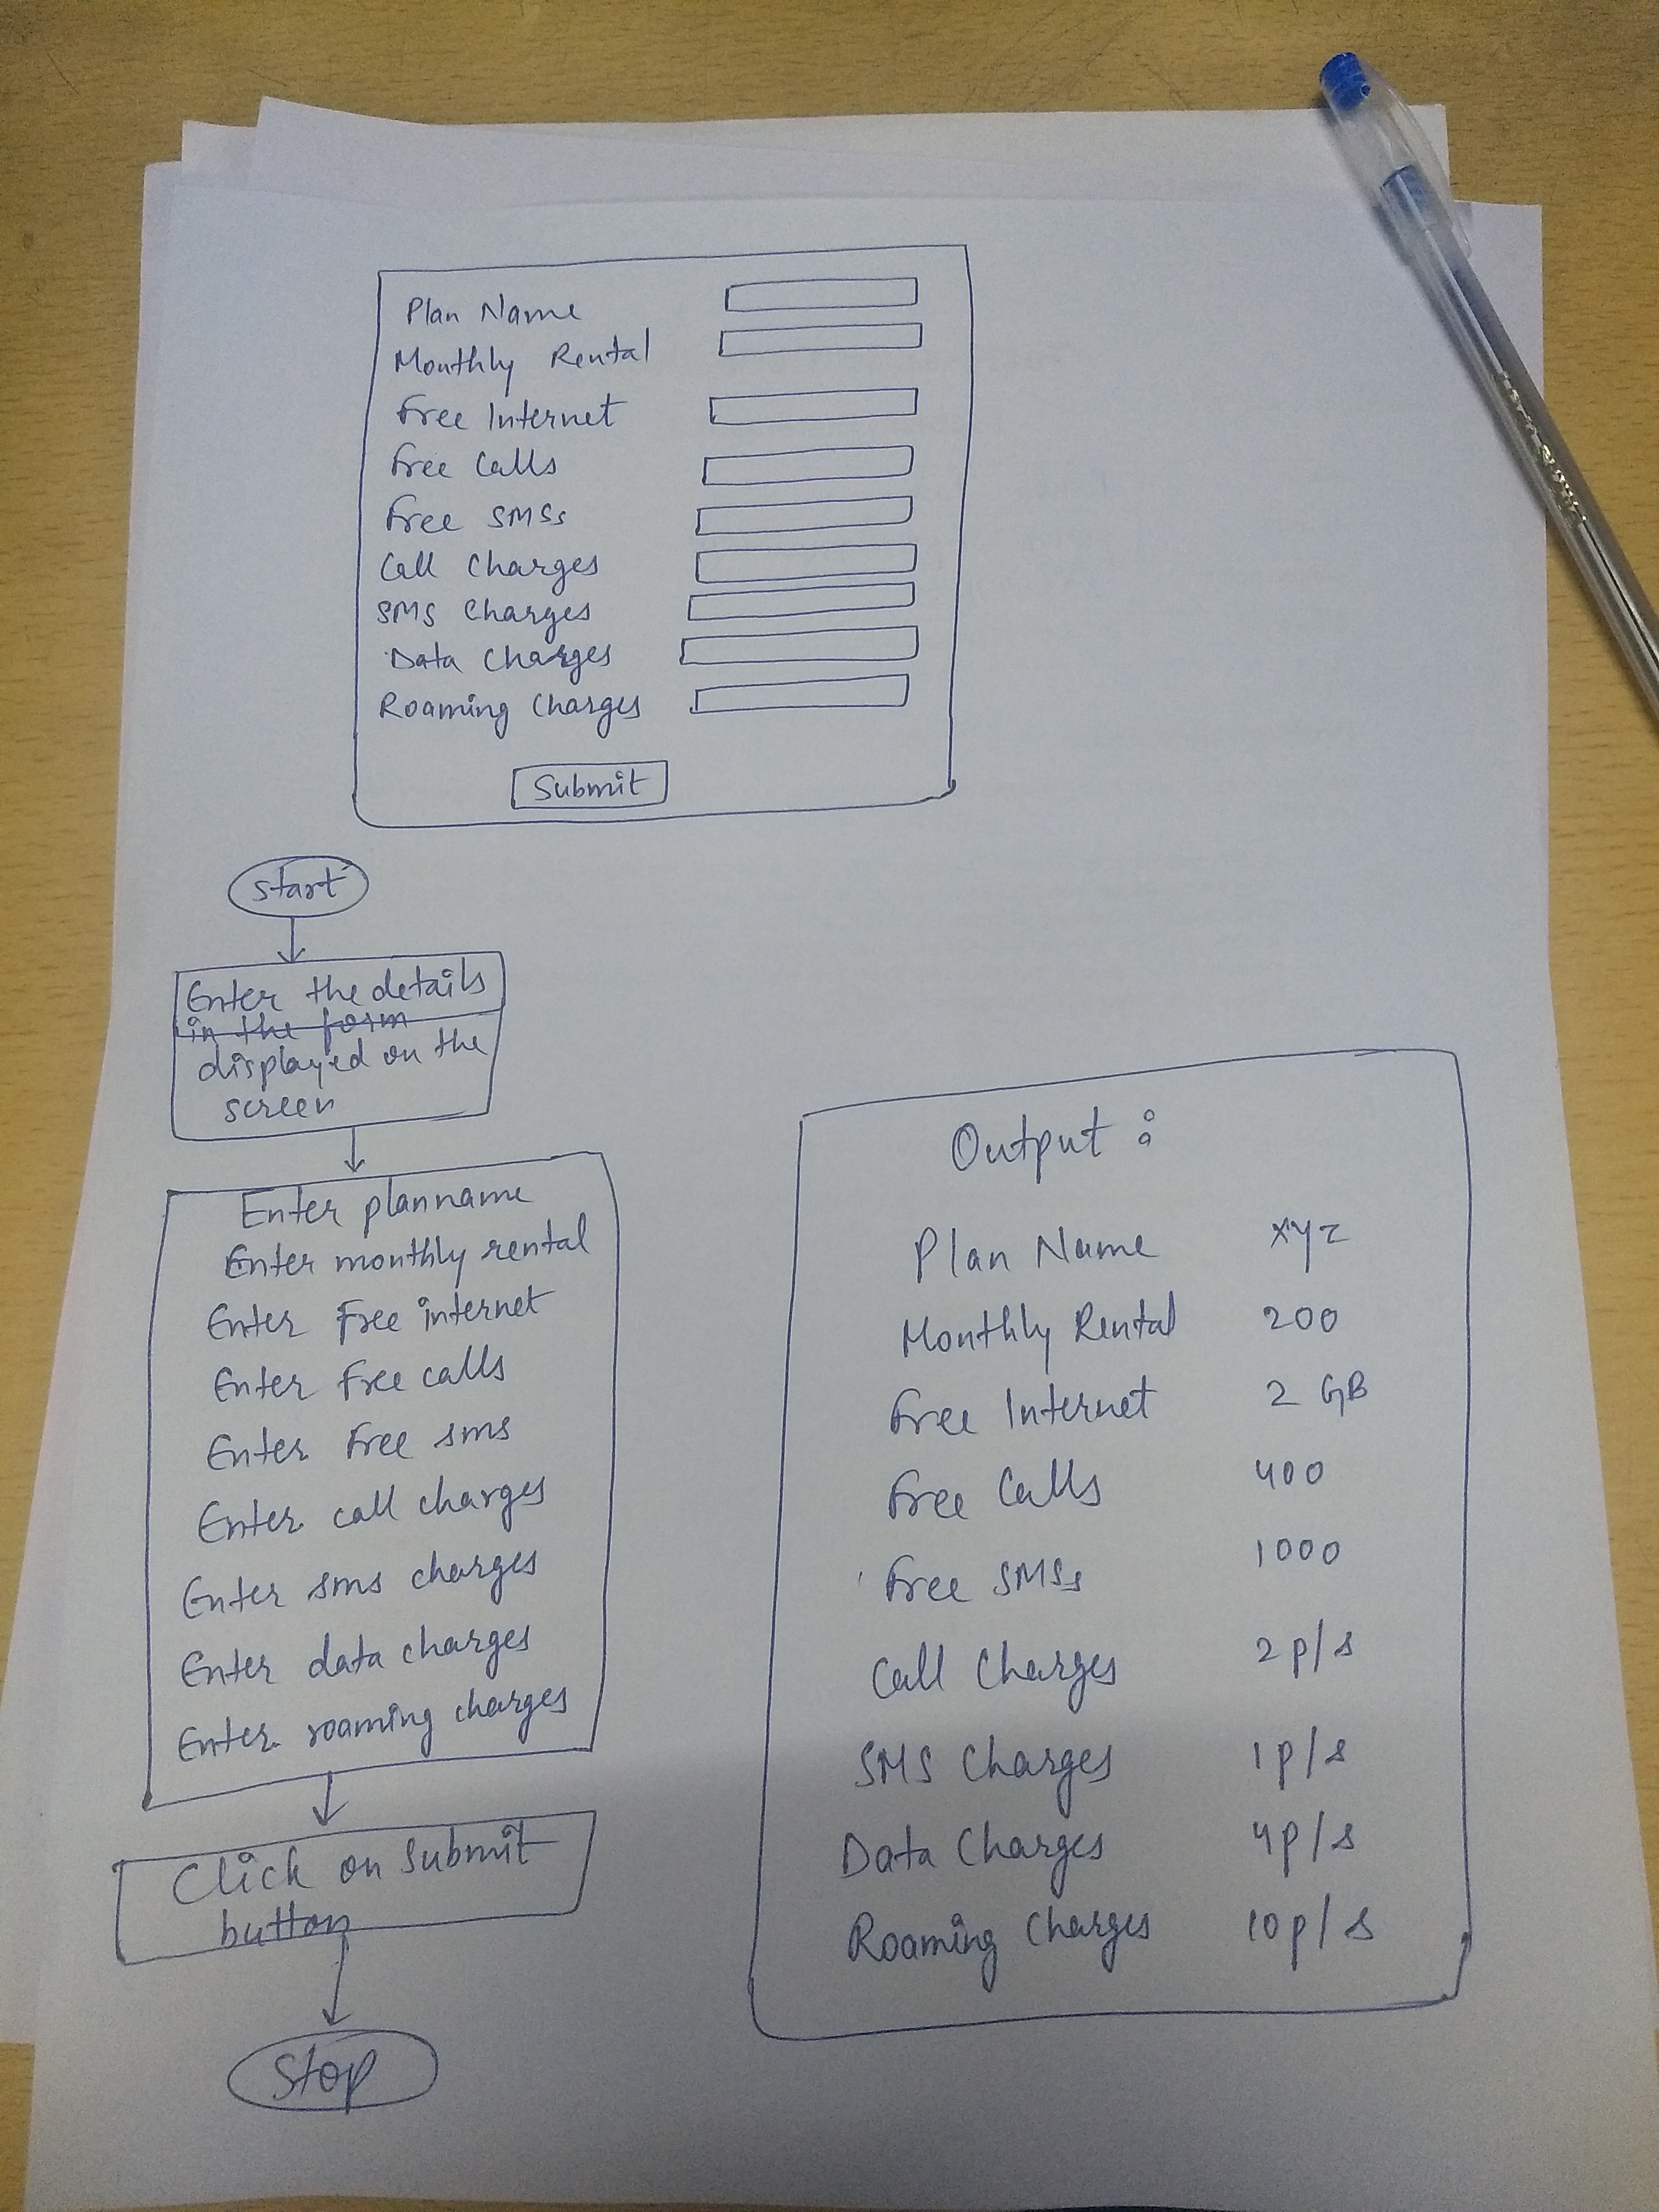 Plan Name
Monthly Rental
Free Internet
Free Calls
Free SMSs
Call Charges
SMS Charges
Data Charges
Roaming Charges
Submit
start
Enter the details
in the form
displayed on the
screen
Enter planname
Enter monthly rental
Enter free internet
Enter free calls
Enter free sms
Enter call charges
Enter sms charges
Enter data charges
Enter roaming charges
Click on submit
button
Stop
Output :
Plan Name xyz
Monthly Rental 200
Free Internet 2 GB
Free Calls 400
Free SMSs 1000
Call Charges 2p/s
SMS Charges 1p/s
Data Charges 4p/s
Roaming Charges 10p/s